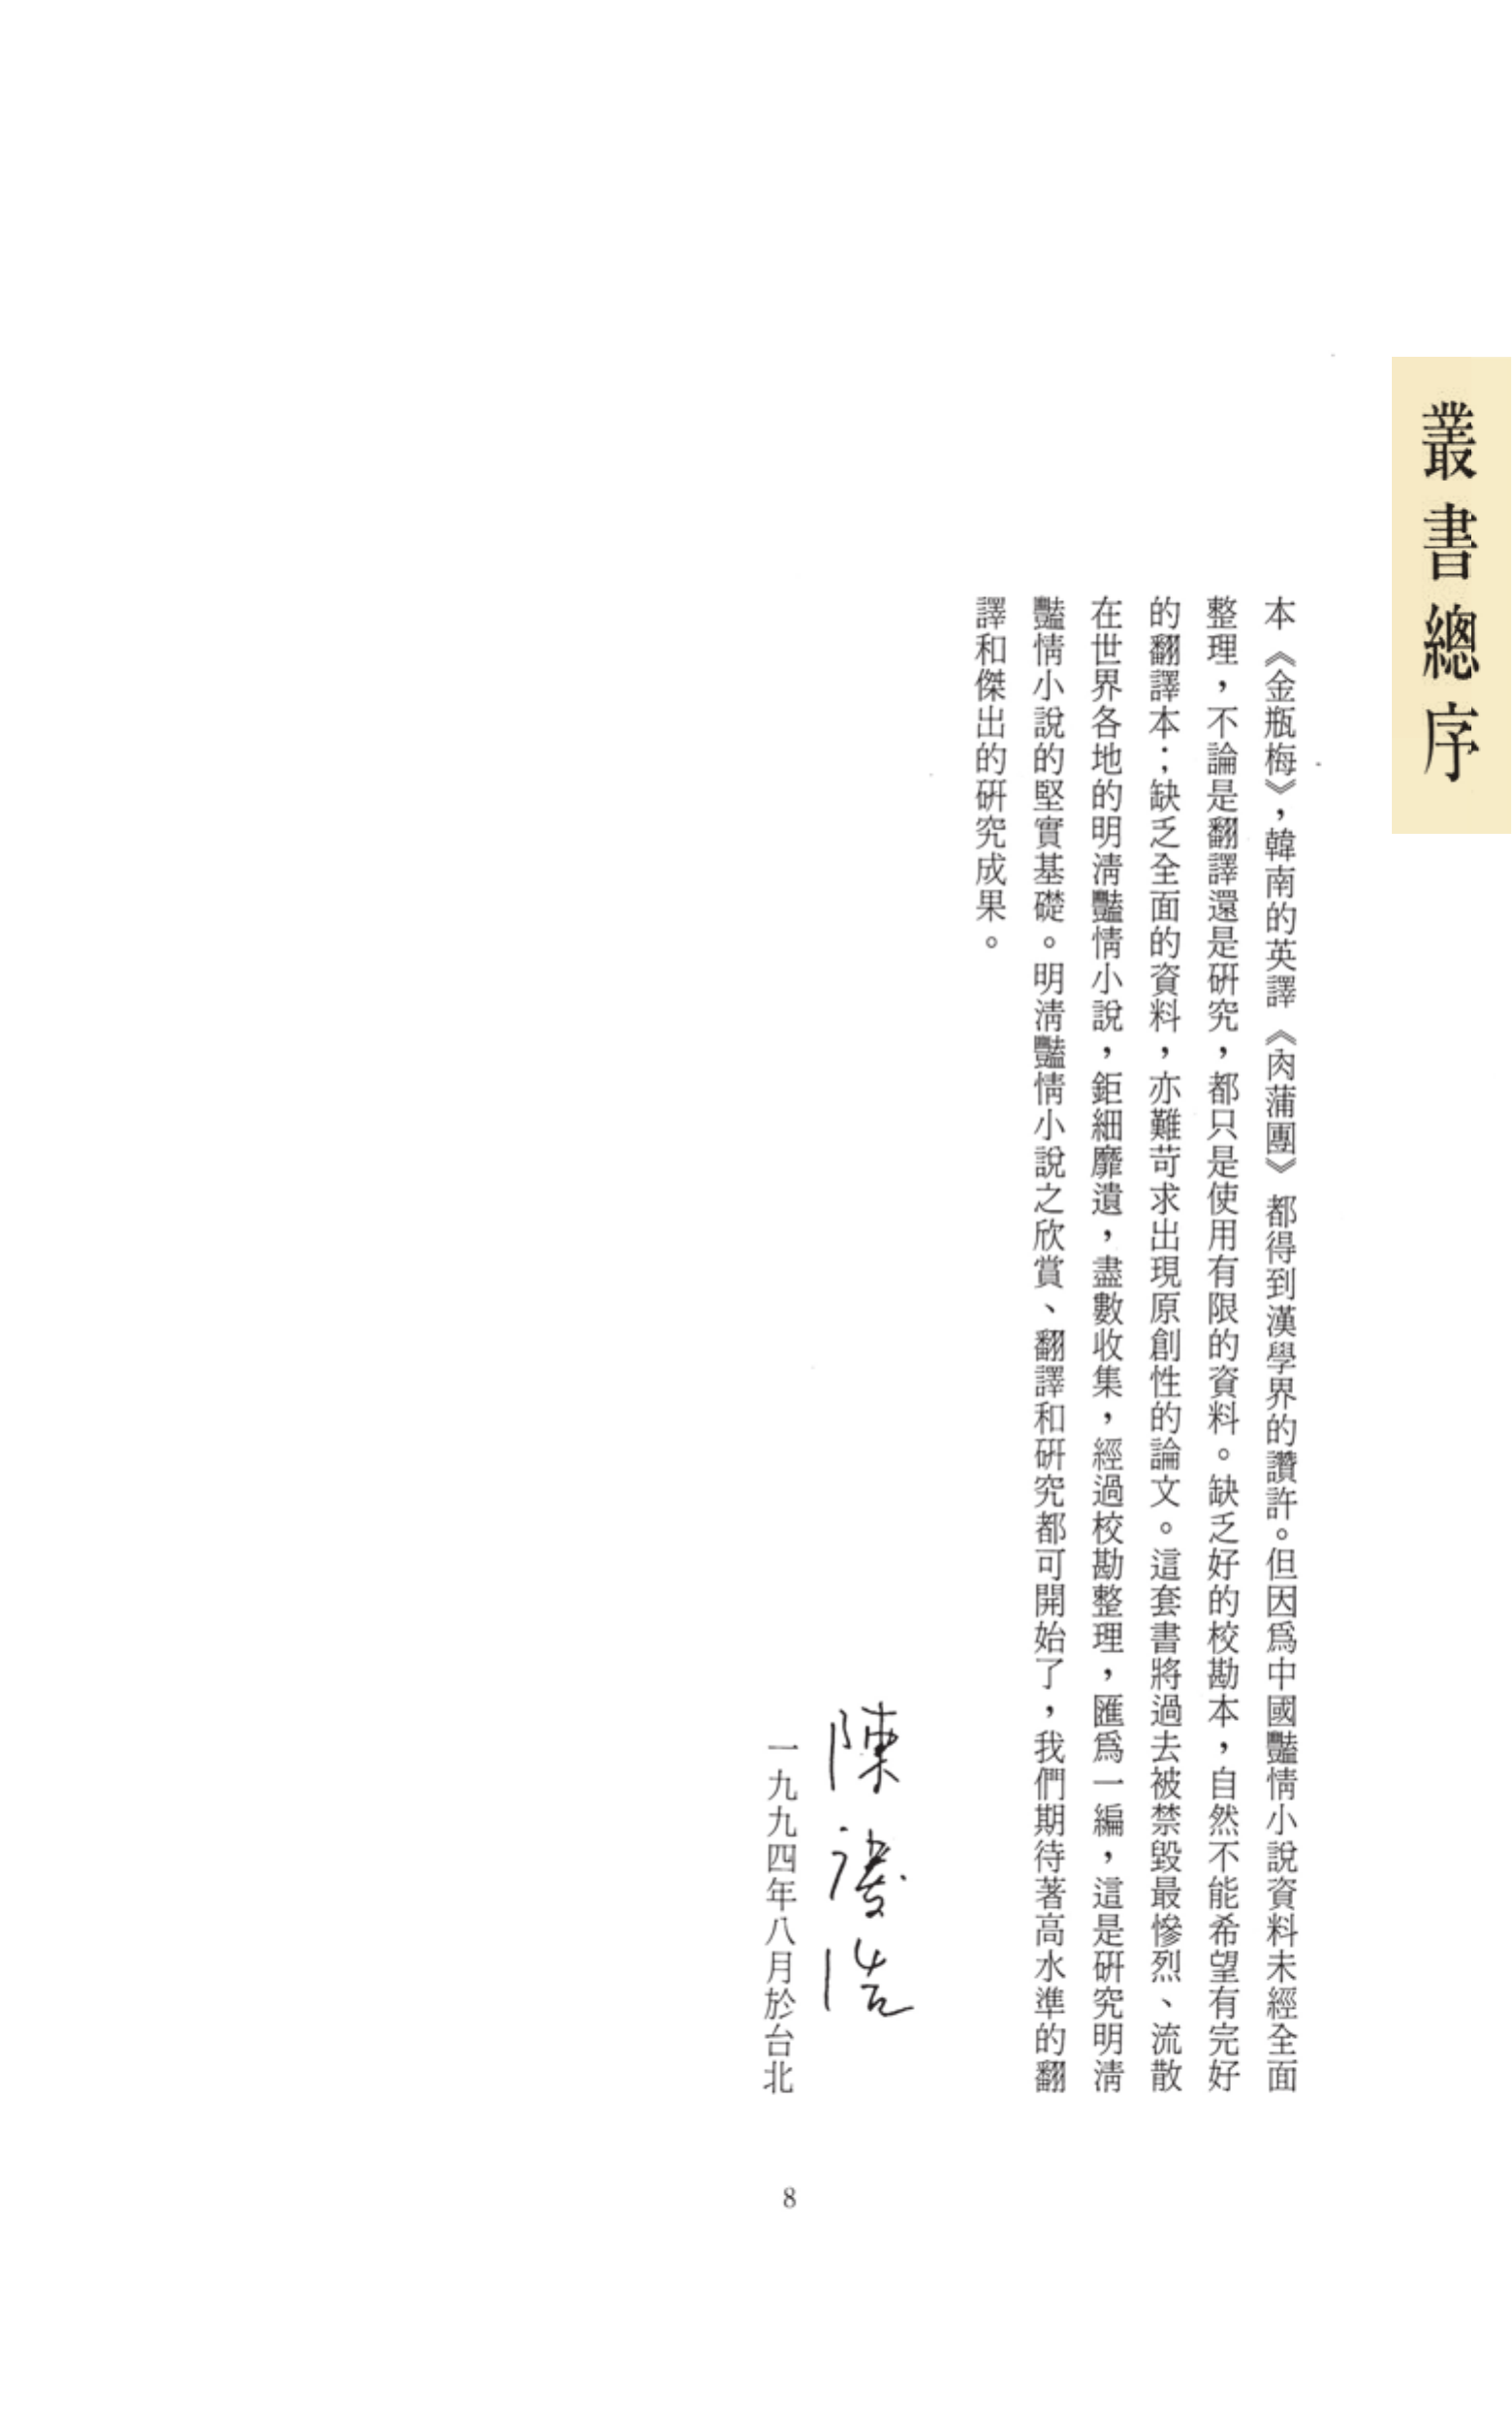 叢書總序
本《金瓶梅》，韓南的英譯《肉蒲團》都得到漢學界的讚許。但因爲中國豔情小說資料未經全面
整理，不論是翻譯還是研究，都只是使用有限的資料。缺乏好的校勘本，自然不能希望有完好
的翻譯本；缺乏全面的資料，亦難苛求出現原創性的論文。這套書將過去被禁毀最慘烈、流散
在世界各地的明清豔情小說，鉅細靡遺，盡數收集，經過校勘整理，匯爲一編，這是研究明清
豔情小說的堅實基礎。明清豔情小說之欣賞、翻譯和研究都可開始了，我們期待著高水準的翻
譯和傑出的研究成果。
陳慶浩
一九九四年八月於台北
8